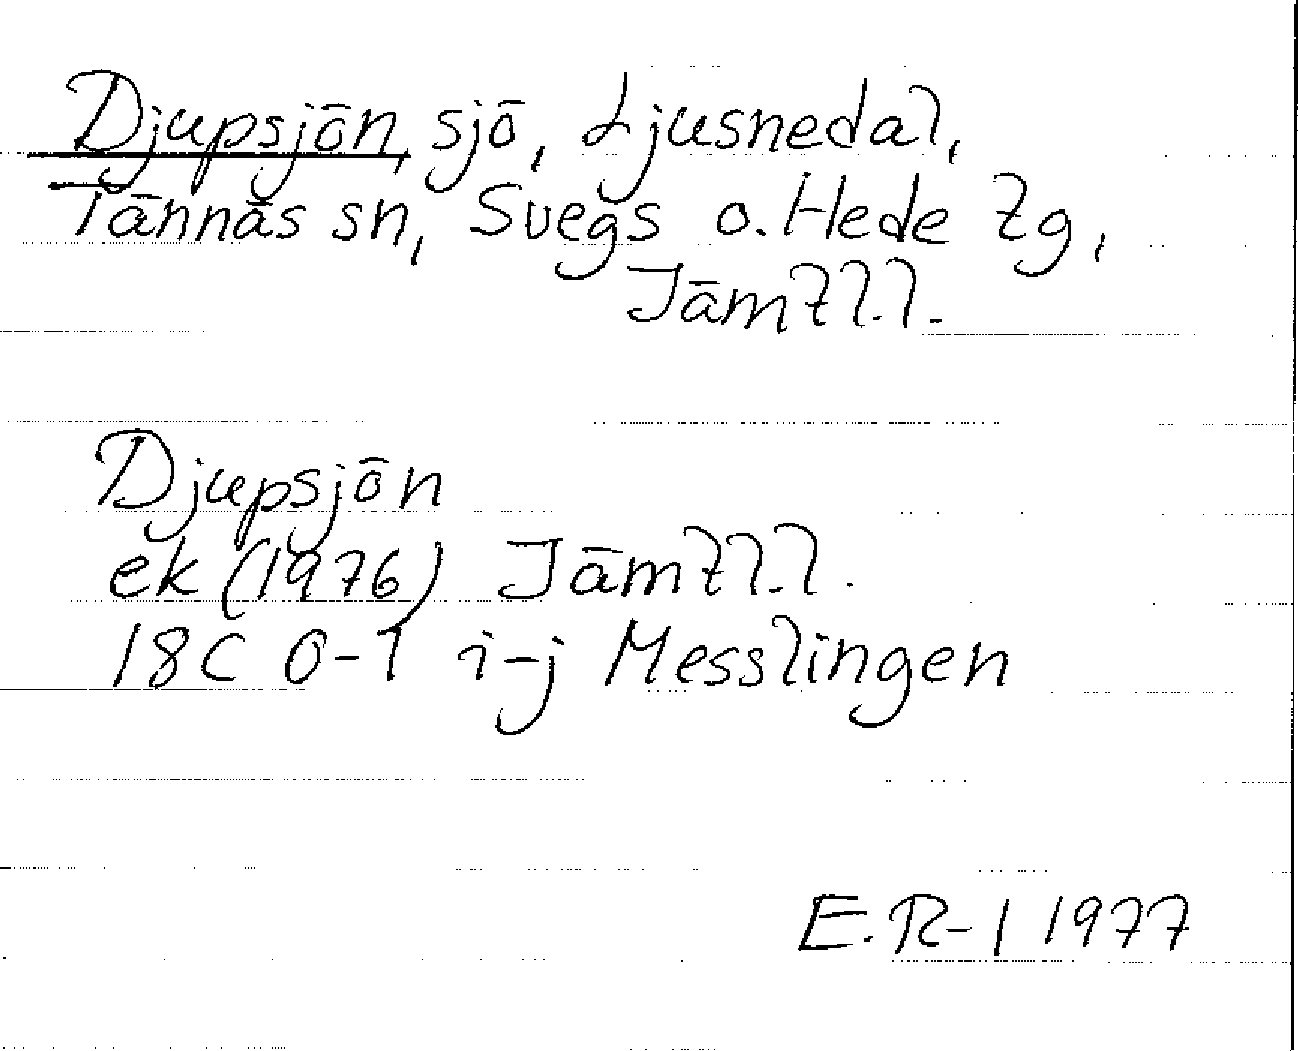 Djupsjön, sjö, Ljusnedal,
Tännäs sn, Svegs o. Hede tg,
Jämtl.l.
Djupsjön
ek (1976) Jämtl.l.
18C 0-1 i-j Messlingen
E.R-l 1977